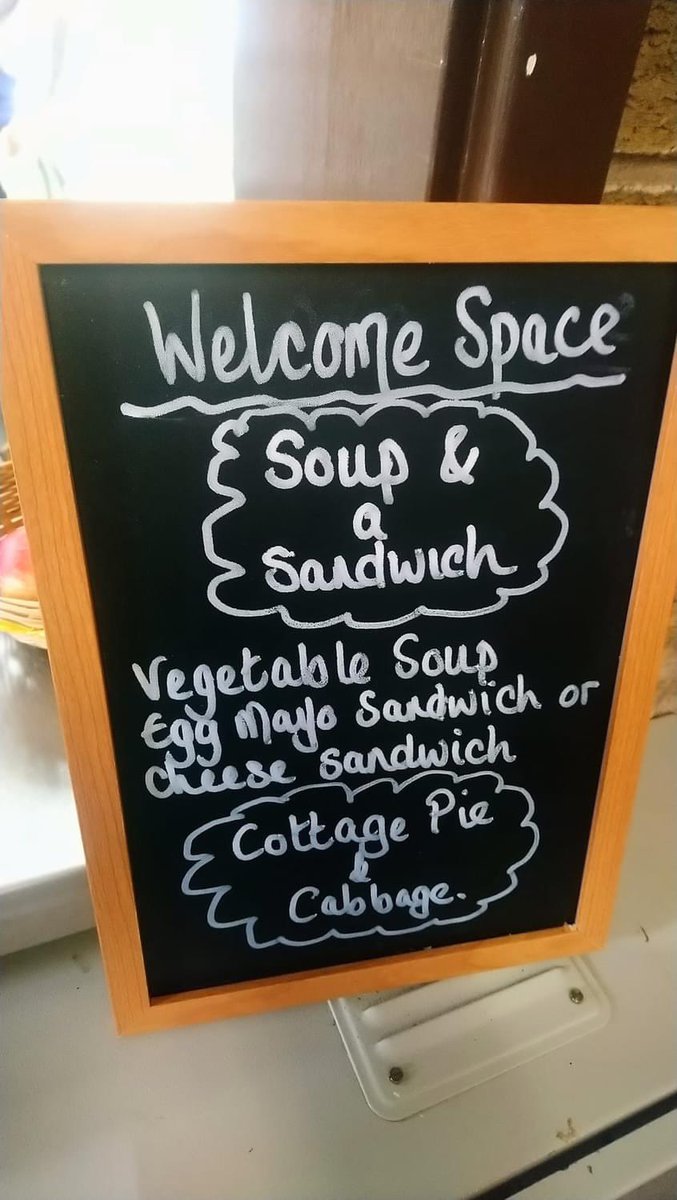 Welcome Space
Soup &
a
Sandwich
Vegetable Soup
Egg Mayo Sandwich or
cheese sandwich
Cottage Pie
&
Cabbage.